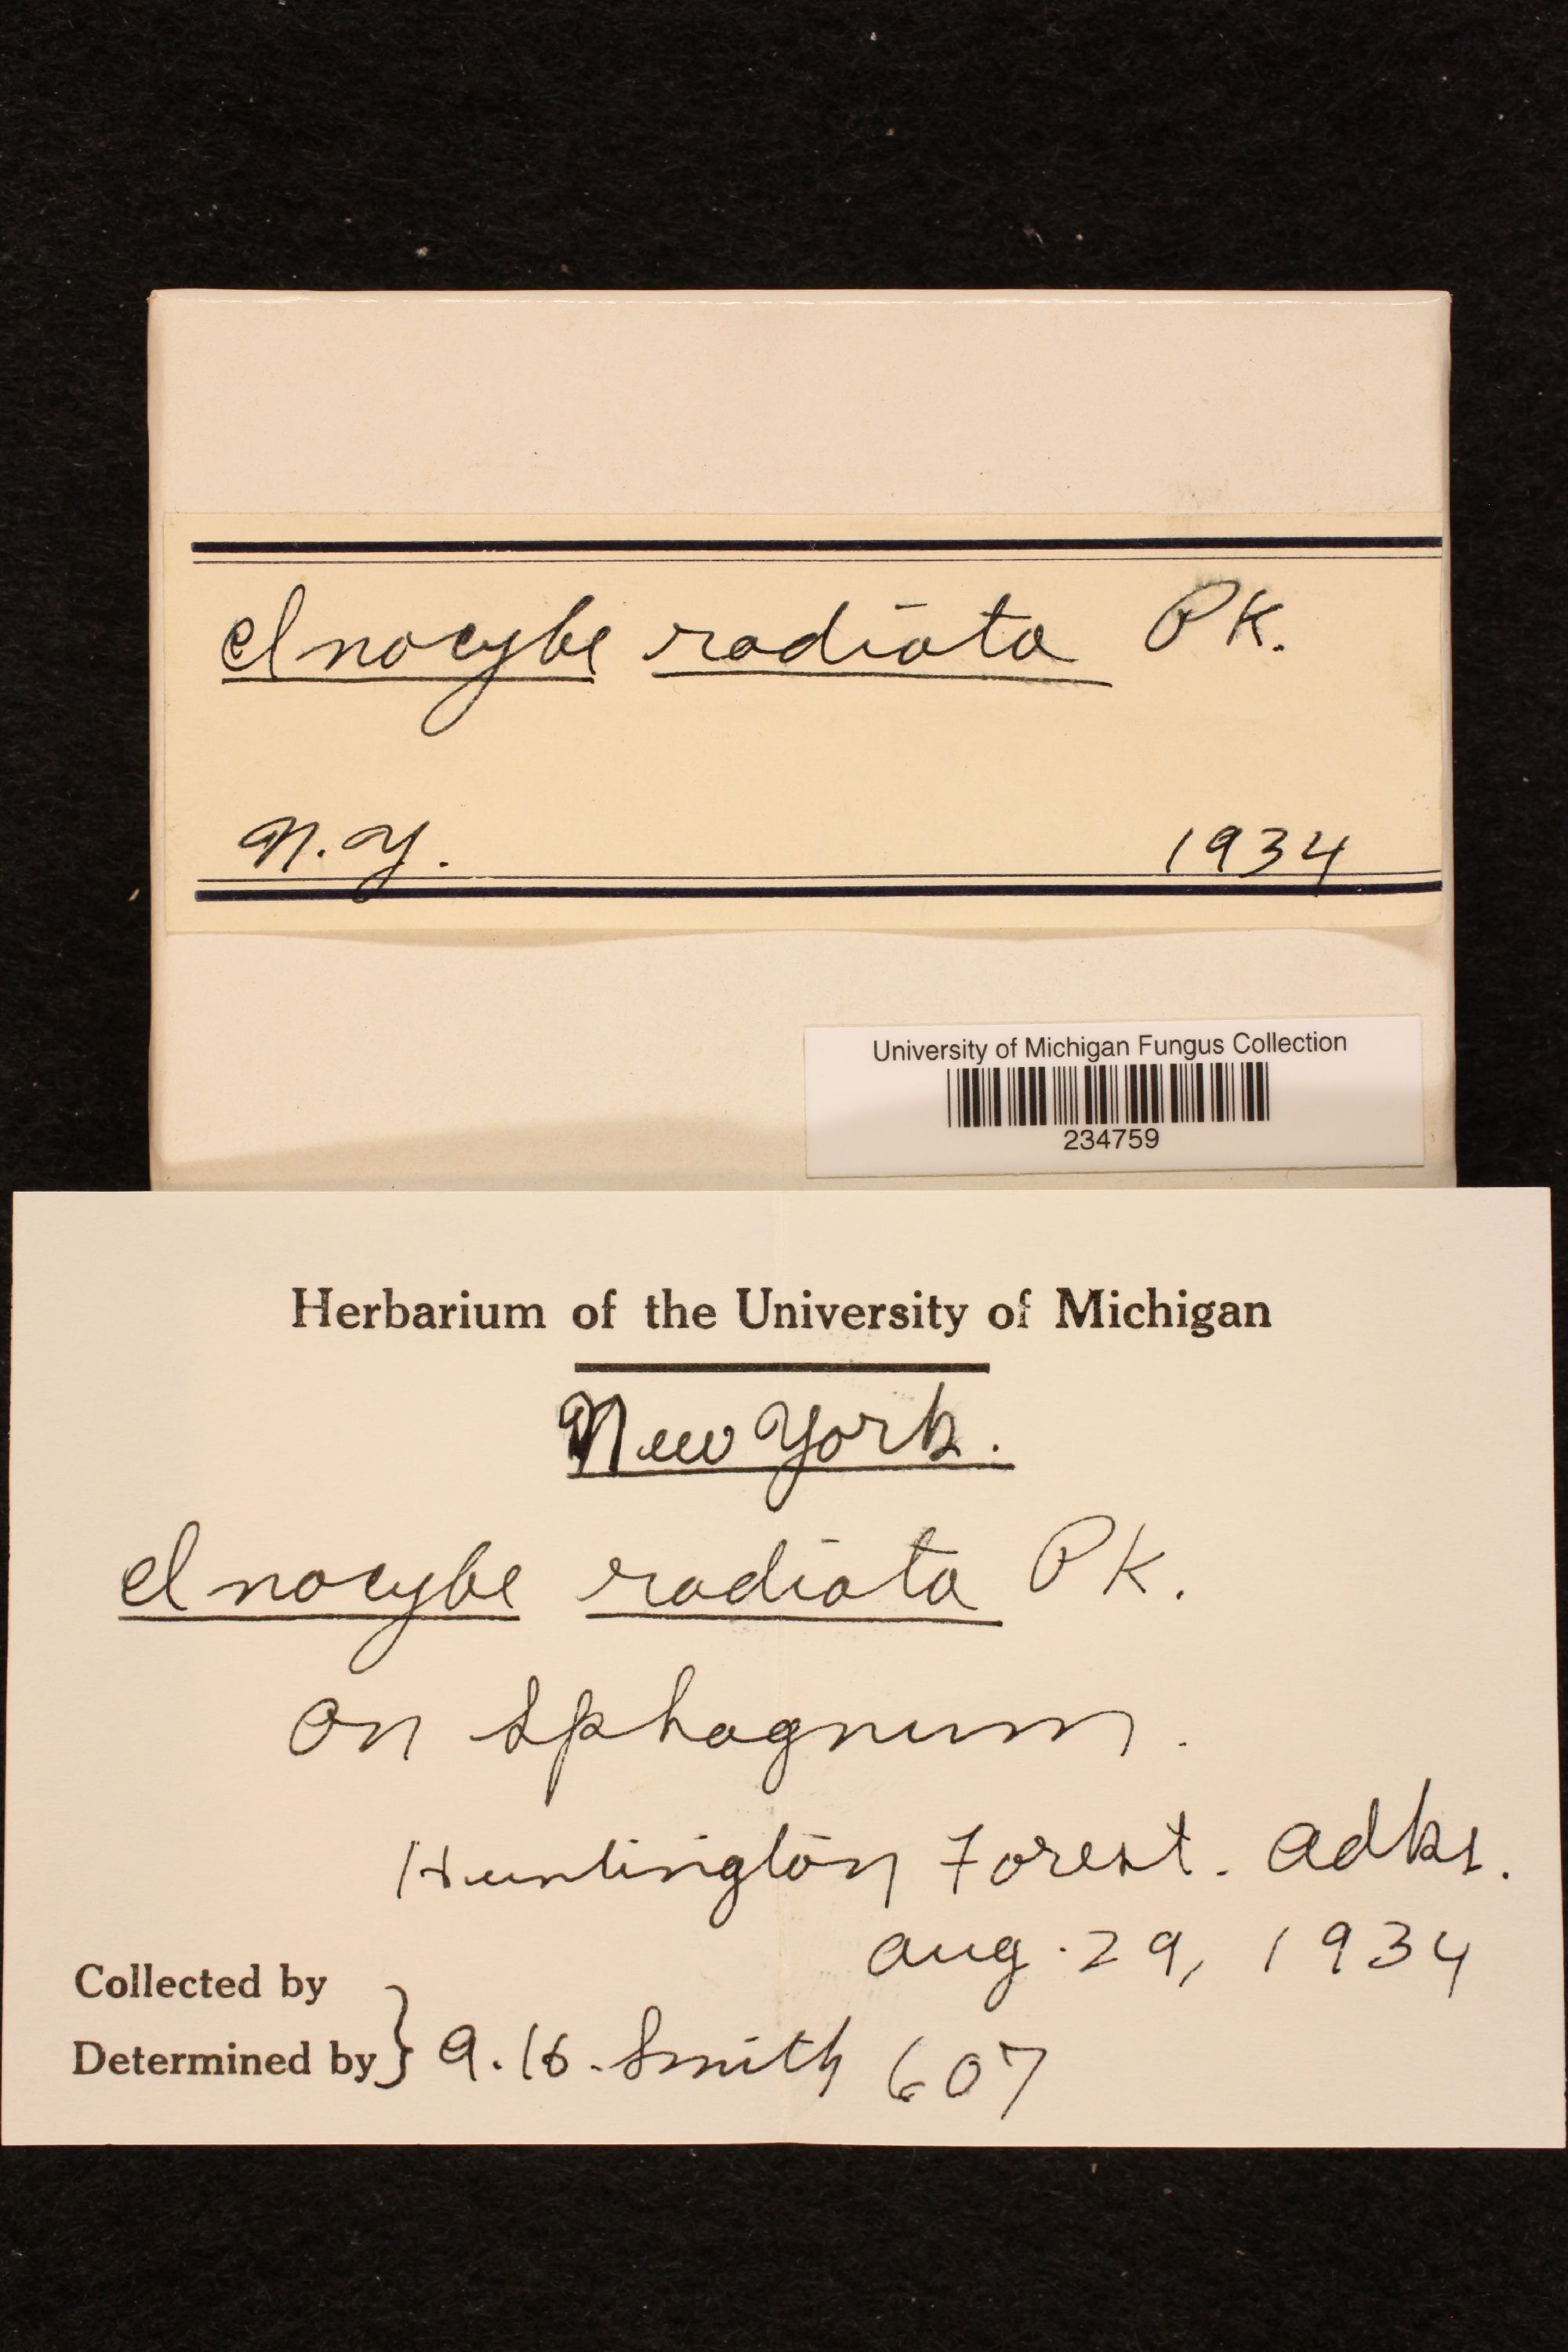 Inocybe radiata Pk.
N.Y. 1934
University of Michigan Fungus Collection
234759
Herbarium of the University of Michigan
New York.
Inocybe radiata Pk.
on sphagnum.
Huntington Forest. Adks.
Aug. 29, 1934
Collected by
Determined by } A.H. Smith 607